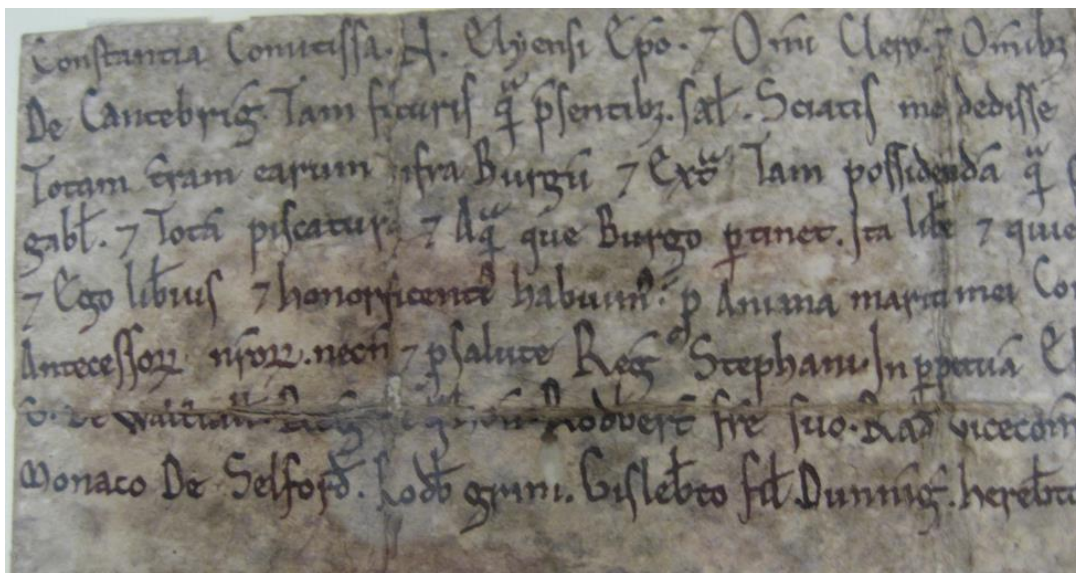 Constantia Comitissa. N. Elyensi Ep̄o. ⁊ Om̄i Clero. ⁊ Omībꝫ
De Cantebrig̃. Tam futuris qͣ̄ p̄sentibꝫ. sał. Sciatis me dedisse
Totam t̄ram earum īfra Burgū ⁊ Extͣ Tam possidendā qͣ̄
gabł. ⁊ Totā piscaturā ⁊ Aqͣ̄ que Burgo ꝑtinet. Ita lib̄e ⁊ quie
⁊ Ego lib̄ius ⁊ honorificentiꝰ habuimꝰ. ꝓ Anima mariti mei Co
Antecessorꝝ nr̄orꝝ. necn̄ ⁊ ꝓ salute Reg̃ Stephani. In ꝑpetuā El
De Rodbert fr̄e suo. Rađ vicecom
Monaco De Selforđ. Rodb̄ grim. Gisleb̄to fił Dunnig̃. hereb̄to